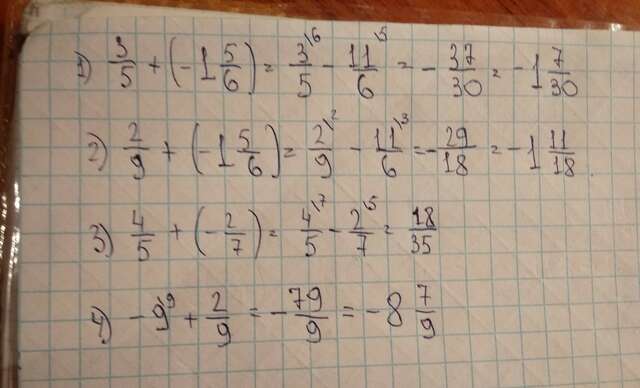 1) 3/5 + (-1 5/6) = 3\6/5 - 11\5/6 = - 37/30 = -1 7/30
2) 2/9 + (-1 5/6) = 2\2/9 - 11\3/6 = - 29/18 = -1 11/18
3) 4/5 + (-2/7) = 4\7/5 - 2\5/7 = 18/35
4) - 9\9 + 2/9 = - 79/9 = -8 7/9